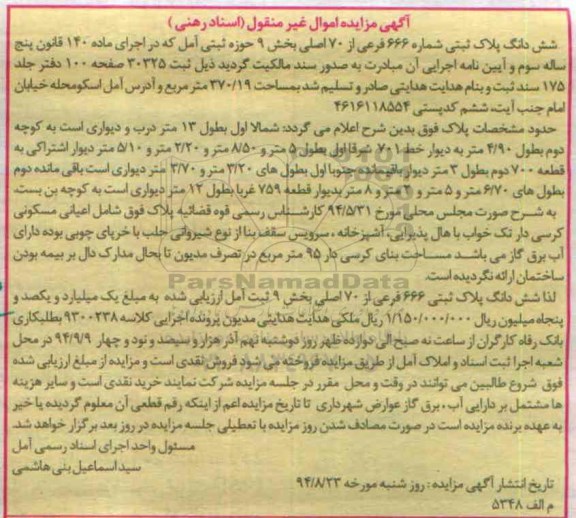 آگهی مزایده اموال غیر منقول (اسناد رهنی)
شش دانگ پلاک ثبتی شماره ۶۶۶ فرعی از ۷۰ اصلی بخش ۹ حوزه ثبتی آمل که در اجرای ماده ۱۴۰ قانون پنج
ساله سوم و آیین نامه اجرایی آن مبادرت به صدور سند مالکیت گردید ذیل ثبت ۳۰۳۲۵ صفحه ۱۰۰ دفتر جلد
۱۷۵ سند ثبت و بنام هدایت هدایتی صادر و تسلیم شد بمساحت ۳۷۰/۱۹ متر مربع و آدرس آمل اسکومحله خیابان
امام جنب آیت، ششم کدپستی ۴۶۱۶۱۱۸۵۵۴
حدود مشخصات پلاک فوق بدین شرح اعلام می گردد: شمالا اول بطول ۱۳ متر درب و دیواری است به کوچه
دوم بطول ۴/۹۰ متر به دیوار خط ۷۰۱ شرقا اول بطول ۵ متر و ۸/۵۰ متر و ۲/۲۰ متر و ۵/۱۰ متر دیوار اشتراکی به
قطعه ۷۰۰ دوم بطول ۳ متر دیوار باقیمانده جنوبا اول بطول های ۳/۲۰ متر و ۳/۷۰ متر دیواری است باقی مانده دوم
بطول های ۶/۷۰ متر و ۵ متر و ۲ متر و ۸ متر بدیوار قطعه ۷۵۹ غربا بطول ۱۲ متر دیواری است به کوچه بن بست.
به شرح صورت مجلس محلی مورخ ۹۴/۵/۳۱ کارشناس رسمی قوه قضائیه پلاک فوق شامل اعیانی مسکونی
کرسی دار تک خواب با هال پذیرایی، آشپزخانه، سرویس سقف بنا از نوع شیروانی حلب با خرپای چوبی بوده دارای
آب برق گاز می باشد مساحت بنای کرسی دار ۹۵ متر مربع در تصرف مدیون تا بحال مدارک دال بر بیمه بودن
ساختمان ارائه نگردیده است.
لذا شش دانگ پلاک ثبتی ۶۶۶ فرعی از ۷۰ اصلی بخش ۹ ثبت آمل ارزیابی شده به مبلغ یک میلیارد و یکصد و
پنجاه میلیون ریال ۱/۱۵۰/۰۰۰/۰۰۰ ریال ملکی هدایت هدایتی مدیون پرونده اجرایی کلاسه ۹۳۰۰۲۳۸ بطلبکاری
بانک رفاه کارگران از ساعت نه صبح الی دوازده ظهر روز دوشنبه نهم آذر هزار و سیصد و نود و چهار ۹۴/۹/۹ در محل
شعبه اجرا ثبت اسناد و املاک آمل از طریق مزایده فروخته می شود فروش نقدی است و مزایده از مبلغ ارزیابی شده
فوق شروع طالبین می توانند در وقت و محل مقرر در جلسه مزایده شرکت نمایند خرید نقدی است و سایر هزینه
ها مشتمل بر دارایی آب، برق گاز عوارض شهرداری تا تاریخ مزایده اعم از اینکه رقم قطعی آن معلوم گردیده یا خیر
به عهده برنده مزایده است در صورت مصادف شدن روز مزایده با تعطیلی جلسه مزایده در روز بعد برگزار خواهد شد.
مسئول واحد اجرای اسناد رسمی آمل
سید اسماعیل بنی هاشمی
تاریخ انتشار آگهی مزایده: روز شنبه مورخه ۹۴/۸/۲۳
م الف ۵۳۴۸
ParsNamadData